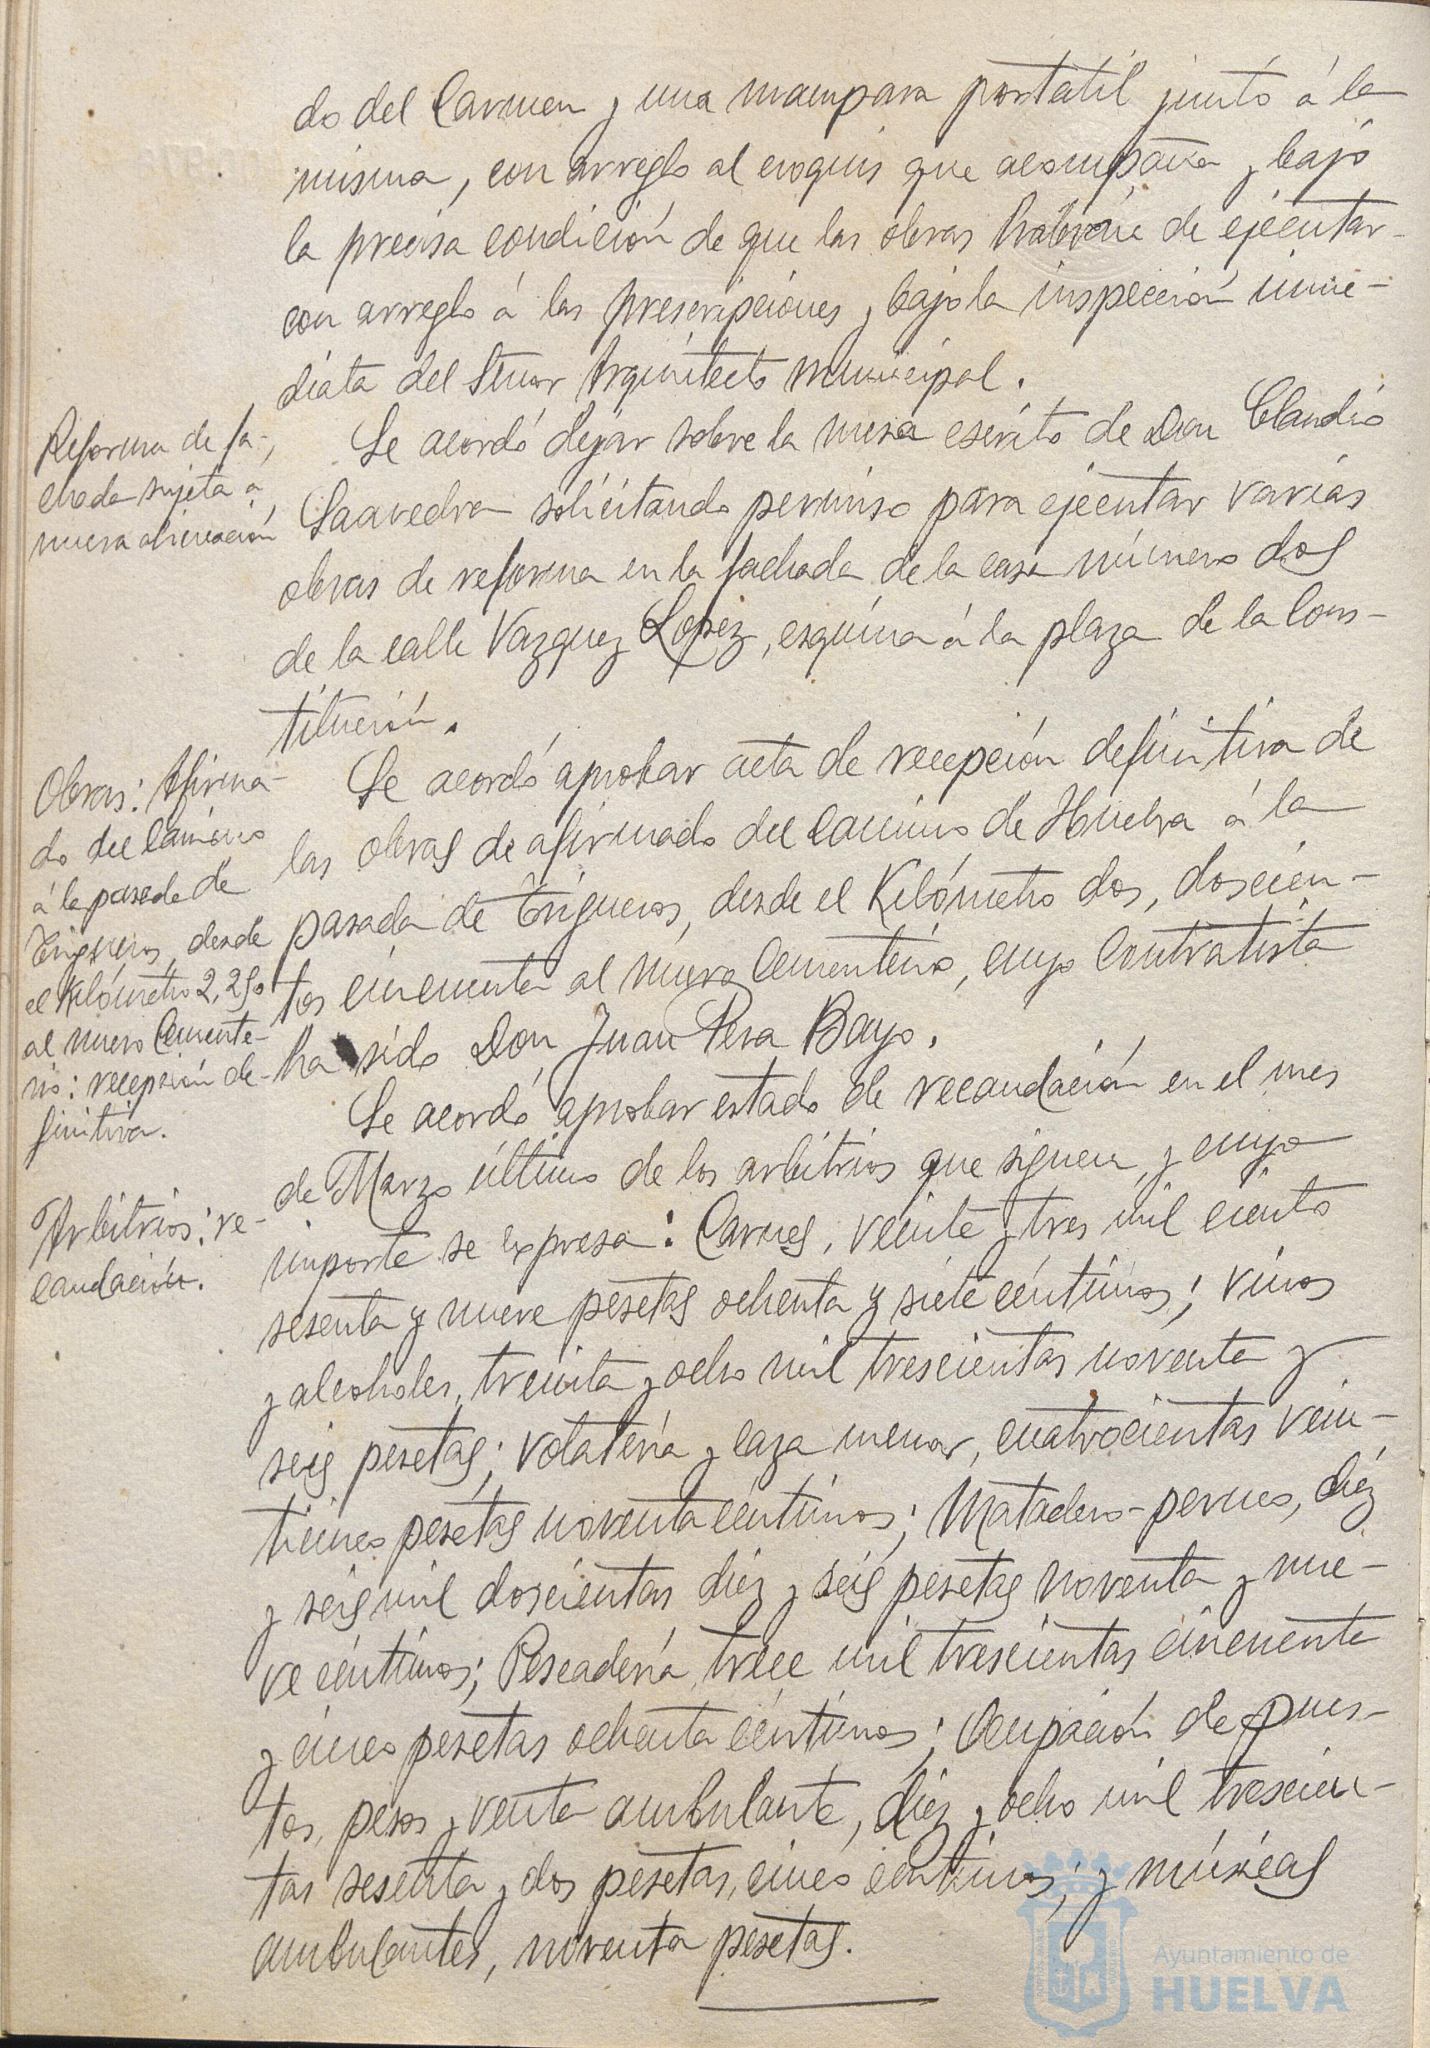 do del Carmen y una mampara portatil junto á la
misma, con arreglo al croquis que acompaña y bajo
la precisa condición de que las obras habrán de ejecutar-
con arreglo á las prescripciones y bajo la inspección inme-
diata del Señor Arquitecto municipal.
Reforma de fa-
chada sujeta a
nueva alineación
Se acordó dejar sobre la mesa escrito de Don Claudio
Saavedra solicitando permiso para ejecutar varias
obras de reforma en la fachada de la casa número dos
de la calle Vazquez Lopez, esquina á la plaza de la Cons-
titución.
Obras: Afirma-
do del camino
á la pasada de
Trigueros, desde
el Kilómetro 2,250
al nuevo Cemente-
rio: recepción de-
finitiva.
Se acordó aprobar acta de recepción definitiva de
las obras de afirmado del camino de Huelva á la
pasada de Trigueros, desde el Kilómetro dos, doscien-
tos cincuenta al nuevo Cementerio, cuyo Contratista
ha sido Don Juan Pera Bayo.
Arbitrios: re-
caudación.
Se acordó aprobar estado de recaudación en el mes
de Marzo último de los arbitrios que siguen, y cuyo
importe se expresa: Carnes, veinte y tres mil ciento
sesenta y nueve pesetas ochenta y siete céntimos; vinos
y alcoholes, treinta y ocho mil trescientas noventa y
seis pesetas; volatería y caza menor, cuatrocientas vein-
ticinco pesetas noventa céntimos; Matadero-perneo, diéz
y seis mil doscientas diez y seis pesetas noventa y nue-
ve céntimos; Pescadería, trece mil trescientas cincuenta
y cinco pesetas ochenta céntimos; Ocupación de pues-
tos, pesos y venta ambulante, diez y ocho mil trescien-
tas sesenta y dos pesetas, cinco céntimos; y músicas
ambulantes, noventa pesetas.
Ayuntamiento de
HUELVA